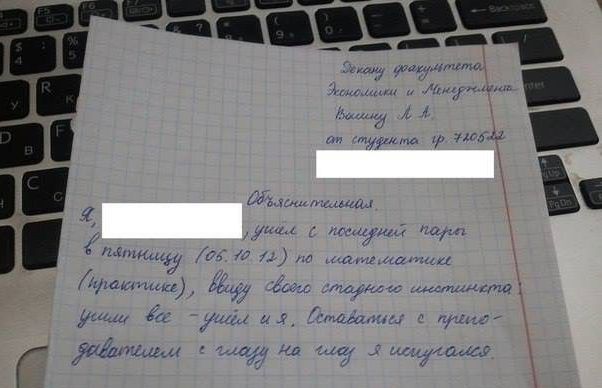 Декану факультета
Экономики и Менеджмента
Вашну А А.
от студента гр 720522
Объяснительная.
Я, , ушёл с последней пары
в пятницу (05.10.12) по математике
(практике), ввиду своего стадного инстинкта:
ушли все - ушёл и я. Оставаться с препо-
давателем с глазу на глаз я испугался.
F5
F6
F7
F8
Backspace
$
4
%
5
6
R
К
Enter
PgUp
PgDn